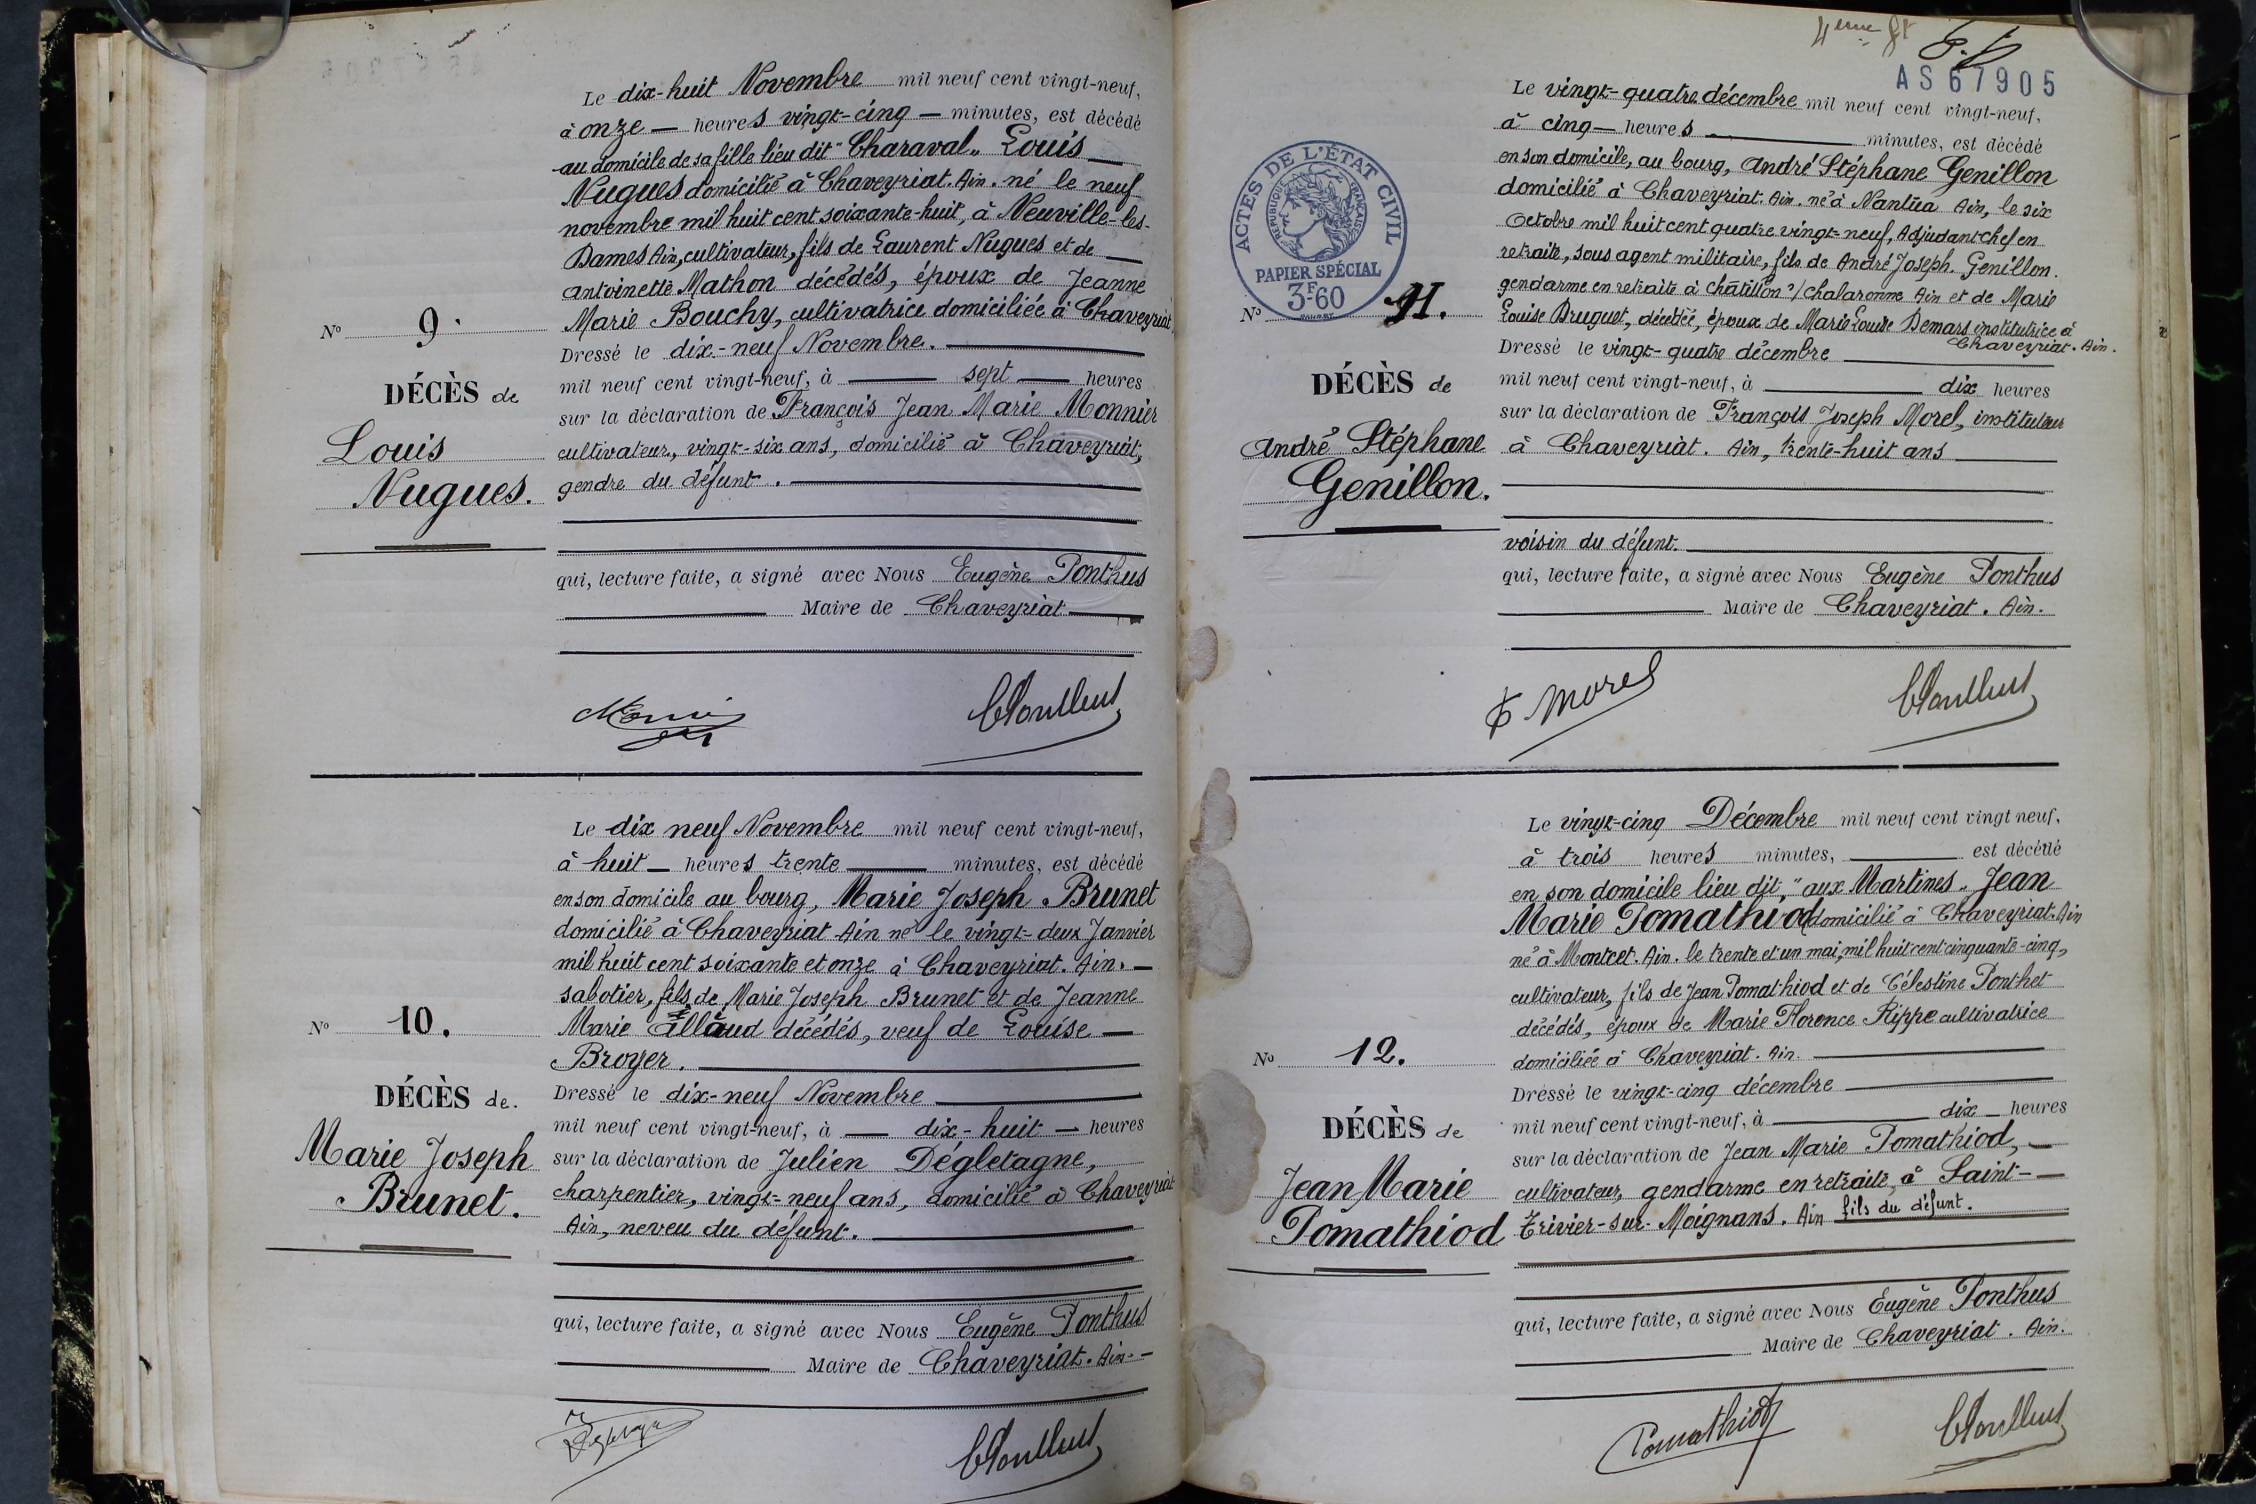 Le dix-huit Novembre mil neuf cent vingt-neuf,
à onze heures vingt-cinq minutes, est décédé
au domicile de sa fille lieu dit "Charaval" Louis
Nugues domicilié à Chaveyriat. Ain. né le neuf
novembre mil huit cent soixante-huit, à Neuville-les-
Dames Ain, cultivateur, fils de Laurent Nugues et de
Antoinette Mathon décédés, époux de Jeanne
Marie Bouchy, cultivatrice domiciliée à Chaveyriat
Dressé le dix-neuf Novembre.
mil neuf cent vingt-neuf, à sept heures
sur la déclaration de François Jean Marie Monnier
cultivateur, vingt-six ans, domicilié à Chaveyriat,
gendre du défunt.
qui, lecture faite, a signé avec Nous Eugène Ponthus
Maire de Chaveyriat
No 9.
DÉCÈS de
Louis
Nugues.
Le dix neuf Novembre mil neuf cent vingt-neuf,
à huit heures trente minutes, est décédé
en son domicile au bourg, Marie Joseph Brunet
domicilié à Chaveyriat Ain né le vingt-deux Janvier
mil huit cent soixante et onze à Chaveyriat. Ain.
sabotier, fils de Marie Joseph Brunet et de Jeanne
Marie Allaud décédés, veuf de Louise
Broyer.
Dressé le dix-neuf Novembre
mil neuf cent vingt-neuf, à dix-huit heures
sur la déclaration de Julien Dégletagne,
charpentier, vingt-neuf ans, domicilié à Chaveyriat
Ain, neveu du défunt.
qui, lecture faite, a signé avec Nous Eugène Ponthus
Maire de Chaveyriat. Ain.
No 10.
DÉCÈS de
Marie Joseph
Brunet.
AS67905
ACTES DE L'ÉTAT CIVIL
RÉPUBLIQUE FRANÇAISE
PAPIER SPÉCIAL
3F60
Le vingt-quatre décembre mil neuf cent vingt-neuf,
à cinq heures minutes, est décédé
en son domicile, au bourg, André Stéphane Genillon
domicilié à Chaveyriat. Ain. né à Nantua Ain, le six
Octobre mil huit cent quatre vingt-neuf, Adjudant chef en
retraite, sous agent militaire, fils de André Joseph. Genillon.
gendarme en retraite à Chatillon s/Chalaronne Ain et de Marie
Louise Bruguet, décédée, époux de Marie Louise Demars institutrice à
Chaveyriat. Ain.
Dressé le vingt-quatre décembre
mil neuf cent vingt-neuf, à dix heures
sur la déclaration de François Joseph Morel, instituteur
à Chaveyriat. Ain, trente-huit ans
voisin du défunt.
qui, lecture faite, a signé avec Nous Eugène Ponthus
Maire de Chaveyriat. Ain.
No 11.
DÉCÈS de
André Stéphane
Genillon.
F Morel
Le vingt-cinq Décembre mil neuf cent vingt neuf,
à trois heures minutes, est décédé
en son domicile lieu dit, "aux Martines" Jean
Marie Pomathiod domicilié à Chaveyriat. Ain
né à Montcet. Ain. le trente et un mai, mil huit cent cinquante-cinq,
cultivateur, fils de Jean Pomathiod et de Célestine Ponthet
décédés, époux de Marie Florence Rippe cultivatrice
domiciliée à Chaveyriat. Ain.
Dressé le vingt-cinq décembre
mil neuf cent vingt-neuf, à dix heures
sur la déclaration de Jean Marie Pomathiod,
cultivateur, gendarme en retraite, à Saint-
Trivier-sur-Moignans. Ain fils du défunt.
qui, lecture faite, a signé avec Nous Eugène Ponthus
Maire de Chaveyriat. Ain.
No 12.
DÉCÈS de
Jean Marie
Pomathiod
Pomathiod